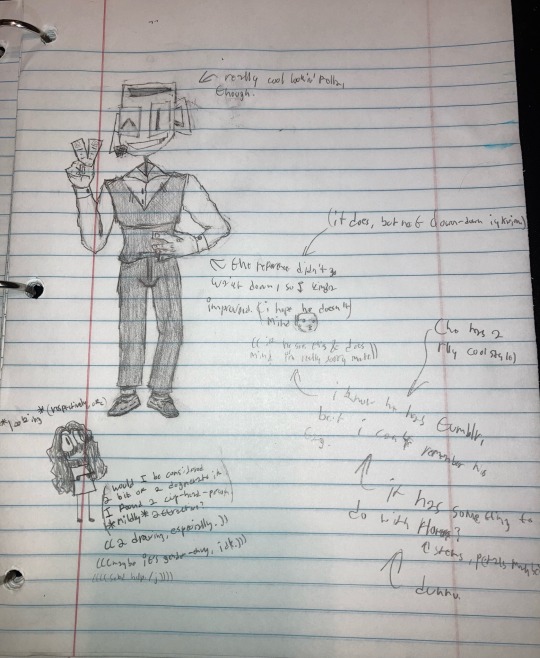 really cool lookin' fella,
though.
(it does, but not down-down
the reference didn't go
waist down, so I kinda
improvised. (i hope he doesn't
mind
((if he sees this & does
mind i'm really sorry mate))
(he has a
rlly cool style)
i know he has tumblr,
but i can't remember his
tag.
it has something to
do with flowers?
stems, petals maybe?
dunno.
*looking* (respectively, ofc)
(would I be considered
a bit of a degenerate if
I found a cup-head-person
*mildly* attractive?
((a drawing, especially.))
(((maybe it's gender-envy, idk.)))
((((send help /j))))